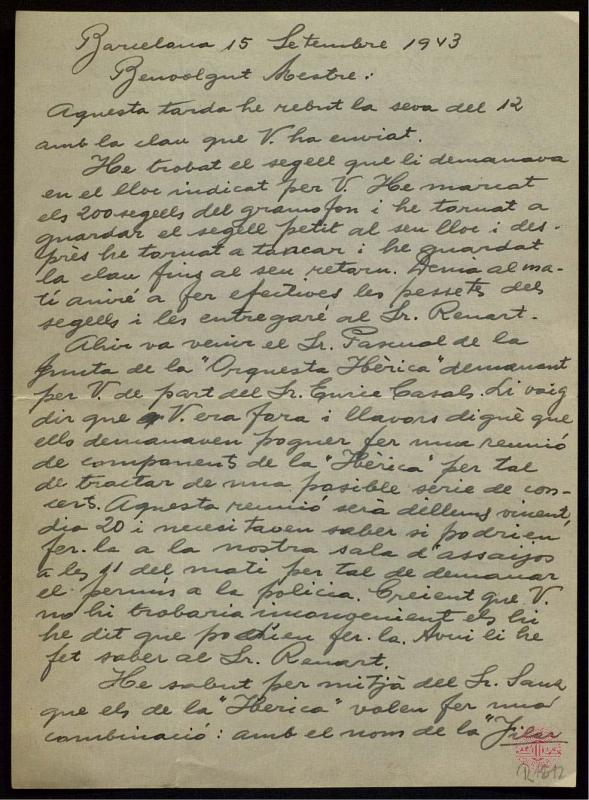 Barcelona 15 Setembre 1943
Benvolgut Mestre:
Aquesta tarda he rebut la seva del 12
amb la clau que V. ha enviat.
He trobat el segell que li demanava
en el lloc indicat per V. He marcat
els 200 segells del gramofon i he tornat a
guardar el segell petit al seu lloc i des-
près he tornat a tancar i he guardat
la clau fins al seu retorn. Demà al ma-
tí aniré a fer efectives les pessetes dels
segells i les entregaré al Sr. Renart.
Ahir va venir el Sr. Pascual de la
Junta de la "Orquesta Ibèrica" demanant
per V. de part del Sr. Enric Casals. Li vaig
dir que V. era fora i llavors digué que
ells demanaven poguer fer una reunió
de components de la "Ibèrica" per tal
de tractar de una posible sèrie de con-
certs. Aquesta reunió serà dilluns vinent,
dia 20 i necesitaven saber si podrien
fer-la a la nostra sala d'assaijos
a les 11 del matí per tal de demanar
el permís a la policia. Creient que V.
no hi trobaria inconvenient els hi
he dit que podrien fer-la. Avui li he
fet saber al Sr. Renart.
He sabut per mitjà del Sr. Sanz
que els de la "Ibèrica" volen fer una
combinació: amb el nom de la "Filar